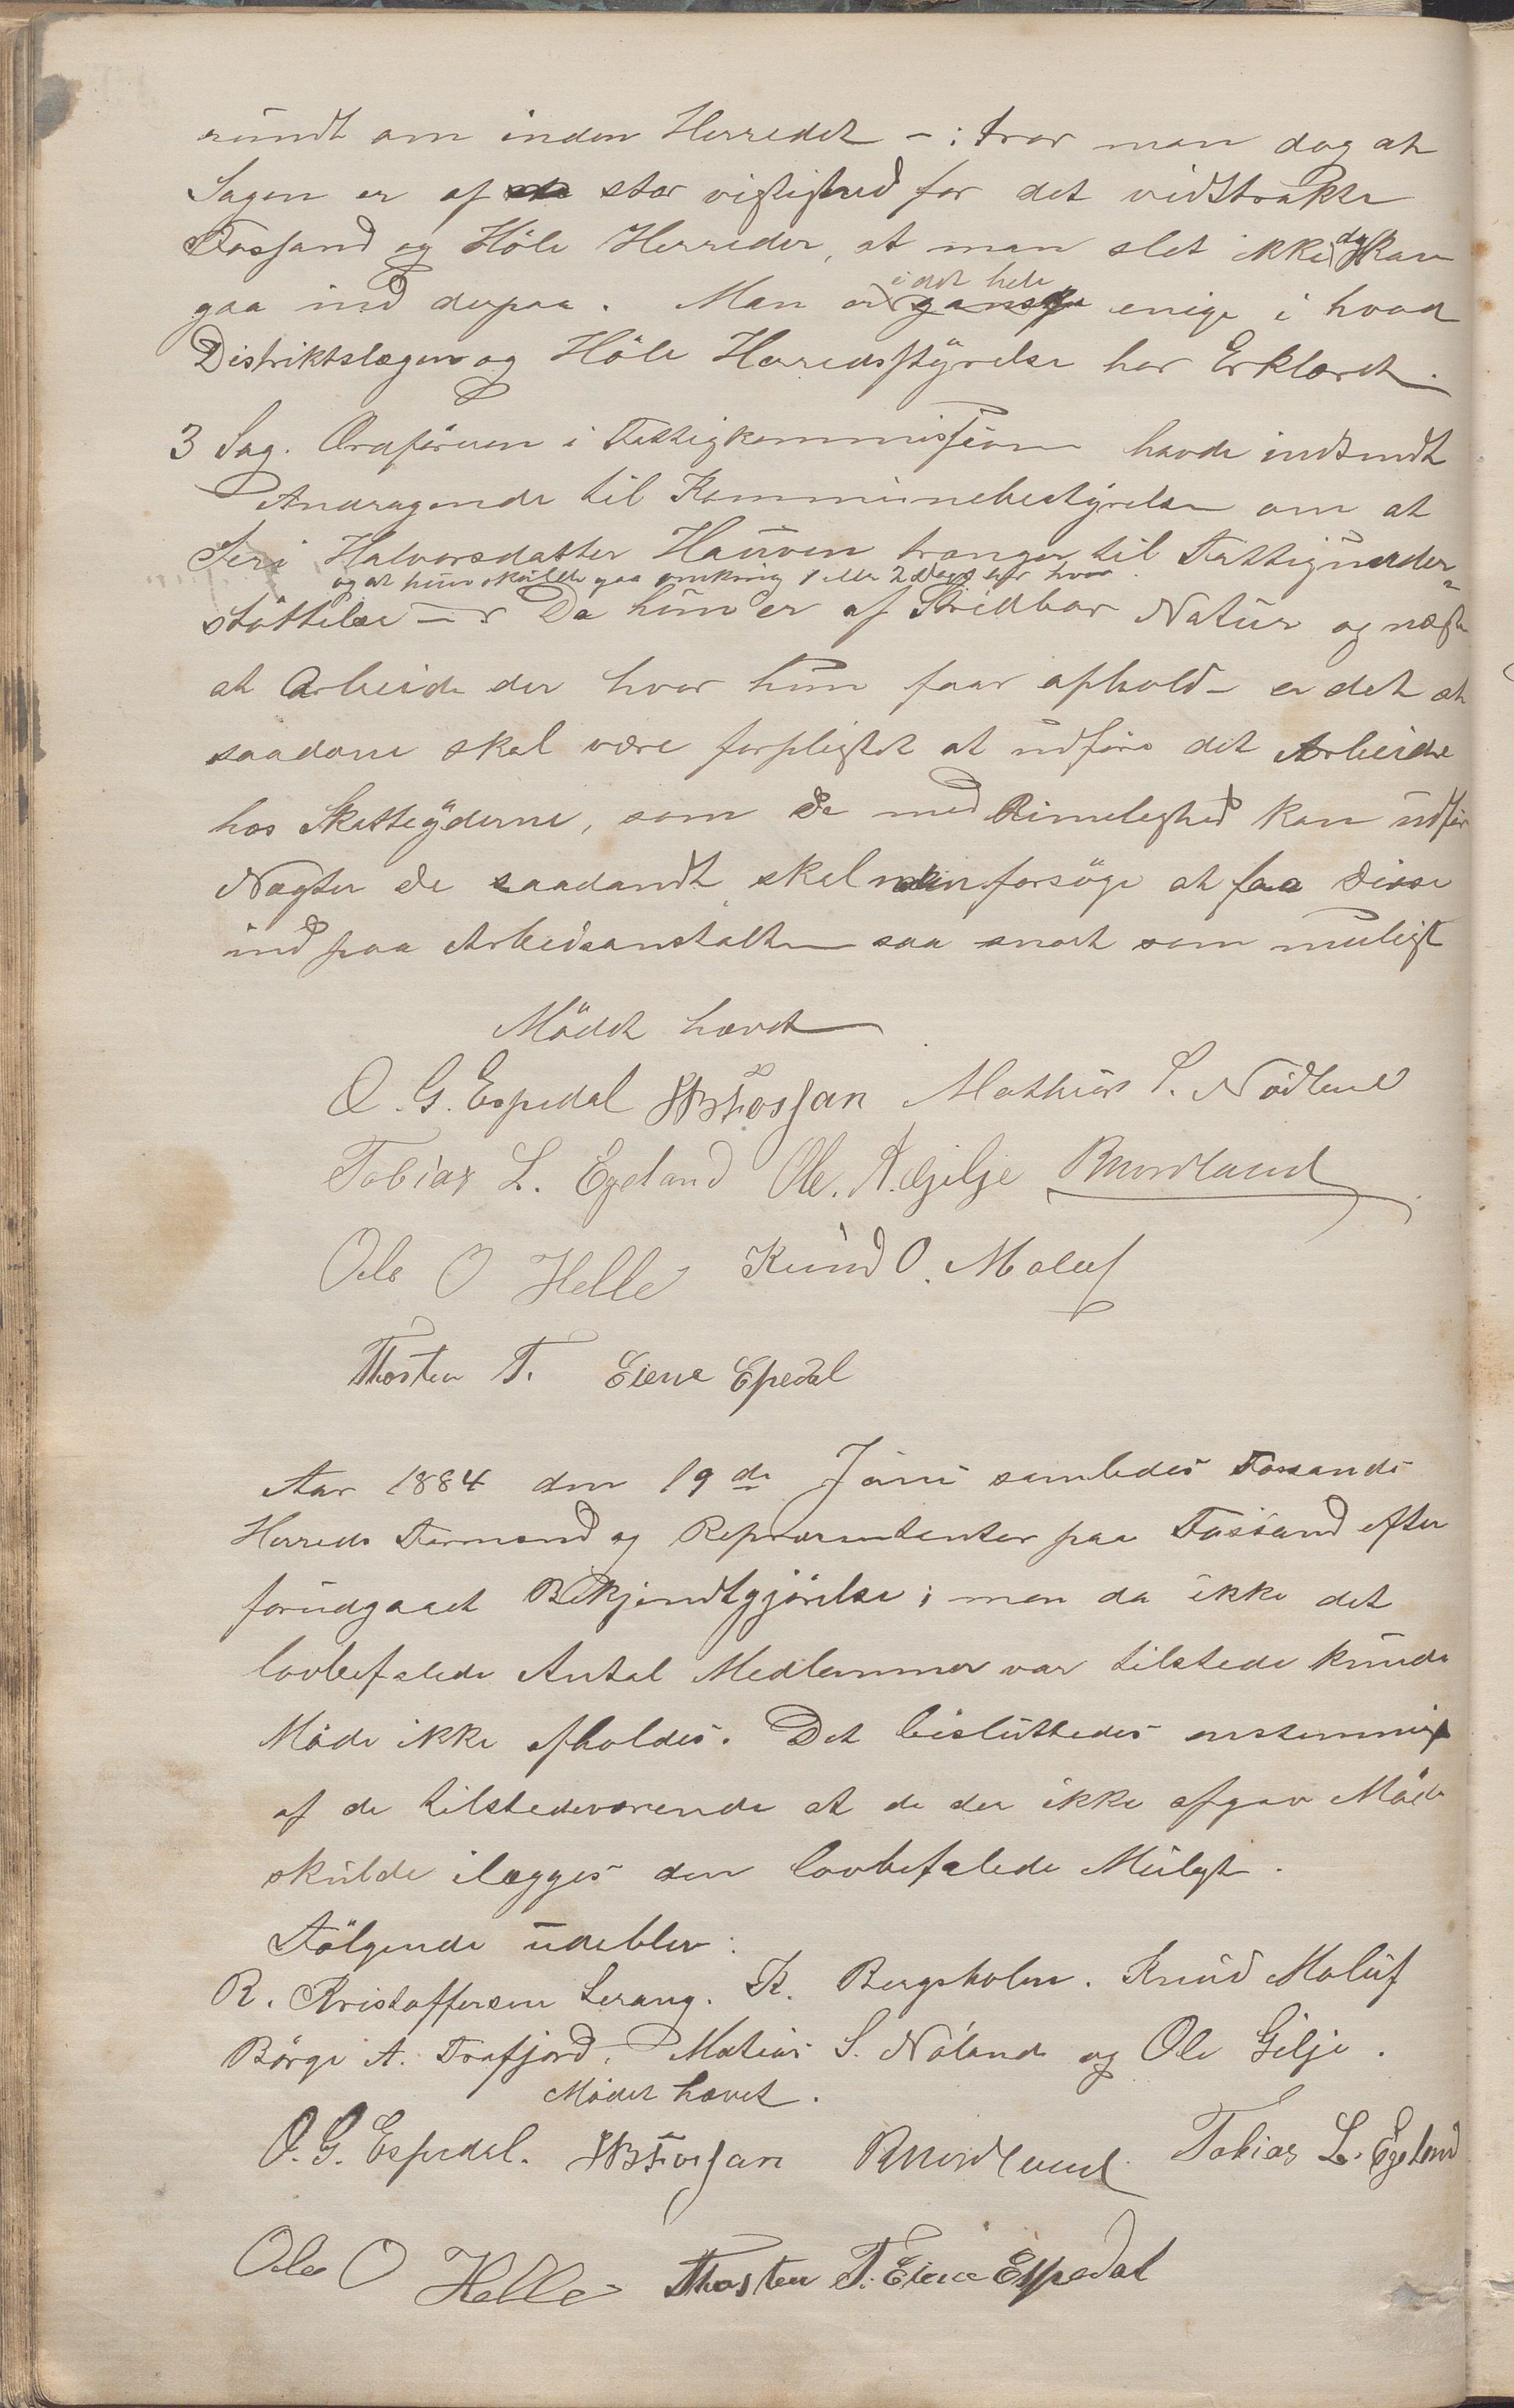 rundt om inden Herredet -: tror man dog at
Sagen er af stor vigtighed for det vidstrakte
Fossand og Höle Herreder, at man slet ikke dog kan
gaa ind derpaa. Man er i det hele ganske enige i hvad
Distriktslægen og Höle Herredsstyrelse har Erklæret.
3 Sag. Ordföreren i Fattigkommissionen havde indsendt
Andragende til Kommunebestyrelsen om at
Seri Halvorsdatter Hauven trænger til Fattigunder-
og at hun skulde gaa omkring 1 eller 2 Dage hver
stöttelse - Da hun er af Stridbar Natur og
at Arbeide der hvor hun faar ophold - er det at
saadane skal være forpligtet at udföre det Arbeide
hos Skatteyderne, som de med Rimelighed kan udför
Nægter de saadandt, skal man forsöge at faa disse
ind paa Arbeidsanstalten saa snart som muligt
Mödet hævet
O. G. Espedal Fossan Mathias S. Nödland
Tobias L. Egeland Ole. A. Gjilje RNordland
Ole O Helle Knud O. Maluf
Thosten T. Eiene Epedal
Aar 1884 den 19de Juni samledes Fossands
Herreds Formend og Repræsentanter paa Fossand efter
forudgaaet Bekjendtgjörelse; men da ikke det
lovbefalede Antal Medlemmer var tilstede kunde
Möde ikke afholdes. Det besluttedes enstemmig
af de tilstedeværende at de der ikke afgav Möde
skulde ilægges den lovbefalede Mulgt.
Fölgende udeblev:
R. Kristoffersen Lerang. K. Bergsholm. Knud Maluf
Börge A. Frafjord, Matias S. Nöland og Ole Gilje.
Mödet hævet.
O. G. Espedal. Fossan RNordland Tobias L. Egeland
Ole O Helle Thosten T. Eiene Espedal